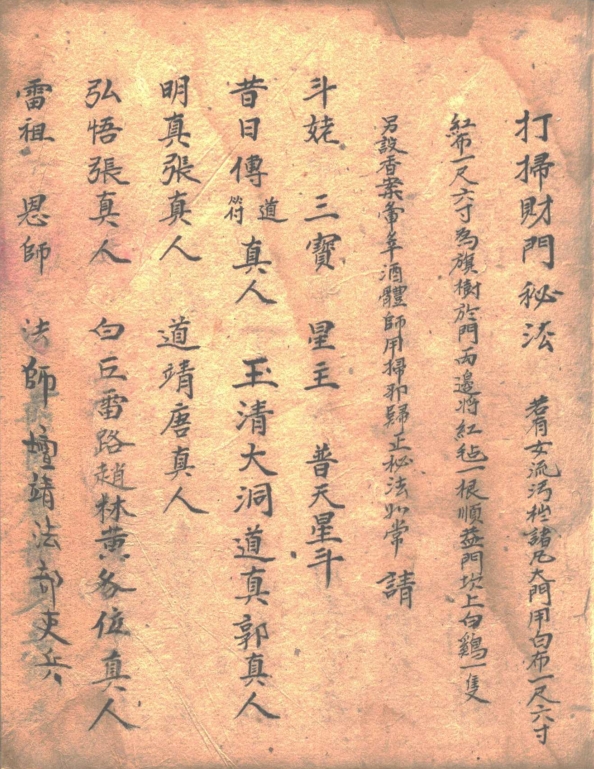 打掃財門秘法 若有女流污 諸凡大門用白布一尺六寸
紅布一尺六寸為旗樹於門兩邊將紅毡一根順蓋門坎上白鷄一隻
另設香案 酒醴師用掃邪歸正秘法如常 請
斗姥 三寶 星主 普天星斗
昔日傳道符真人 玉清大洞道真郭真人
明真張真人 道靖唐真人
弘悟張真人 白 雷路趙林黃各位真人
雷祖 恩師 法師壇靖法部吏兵